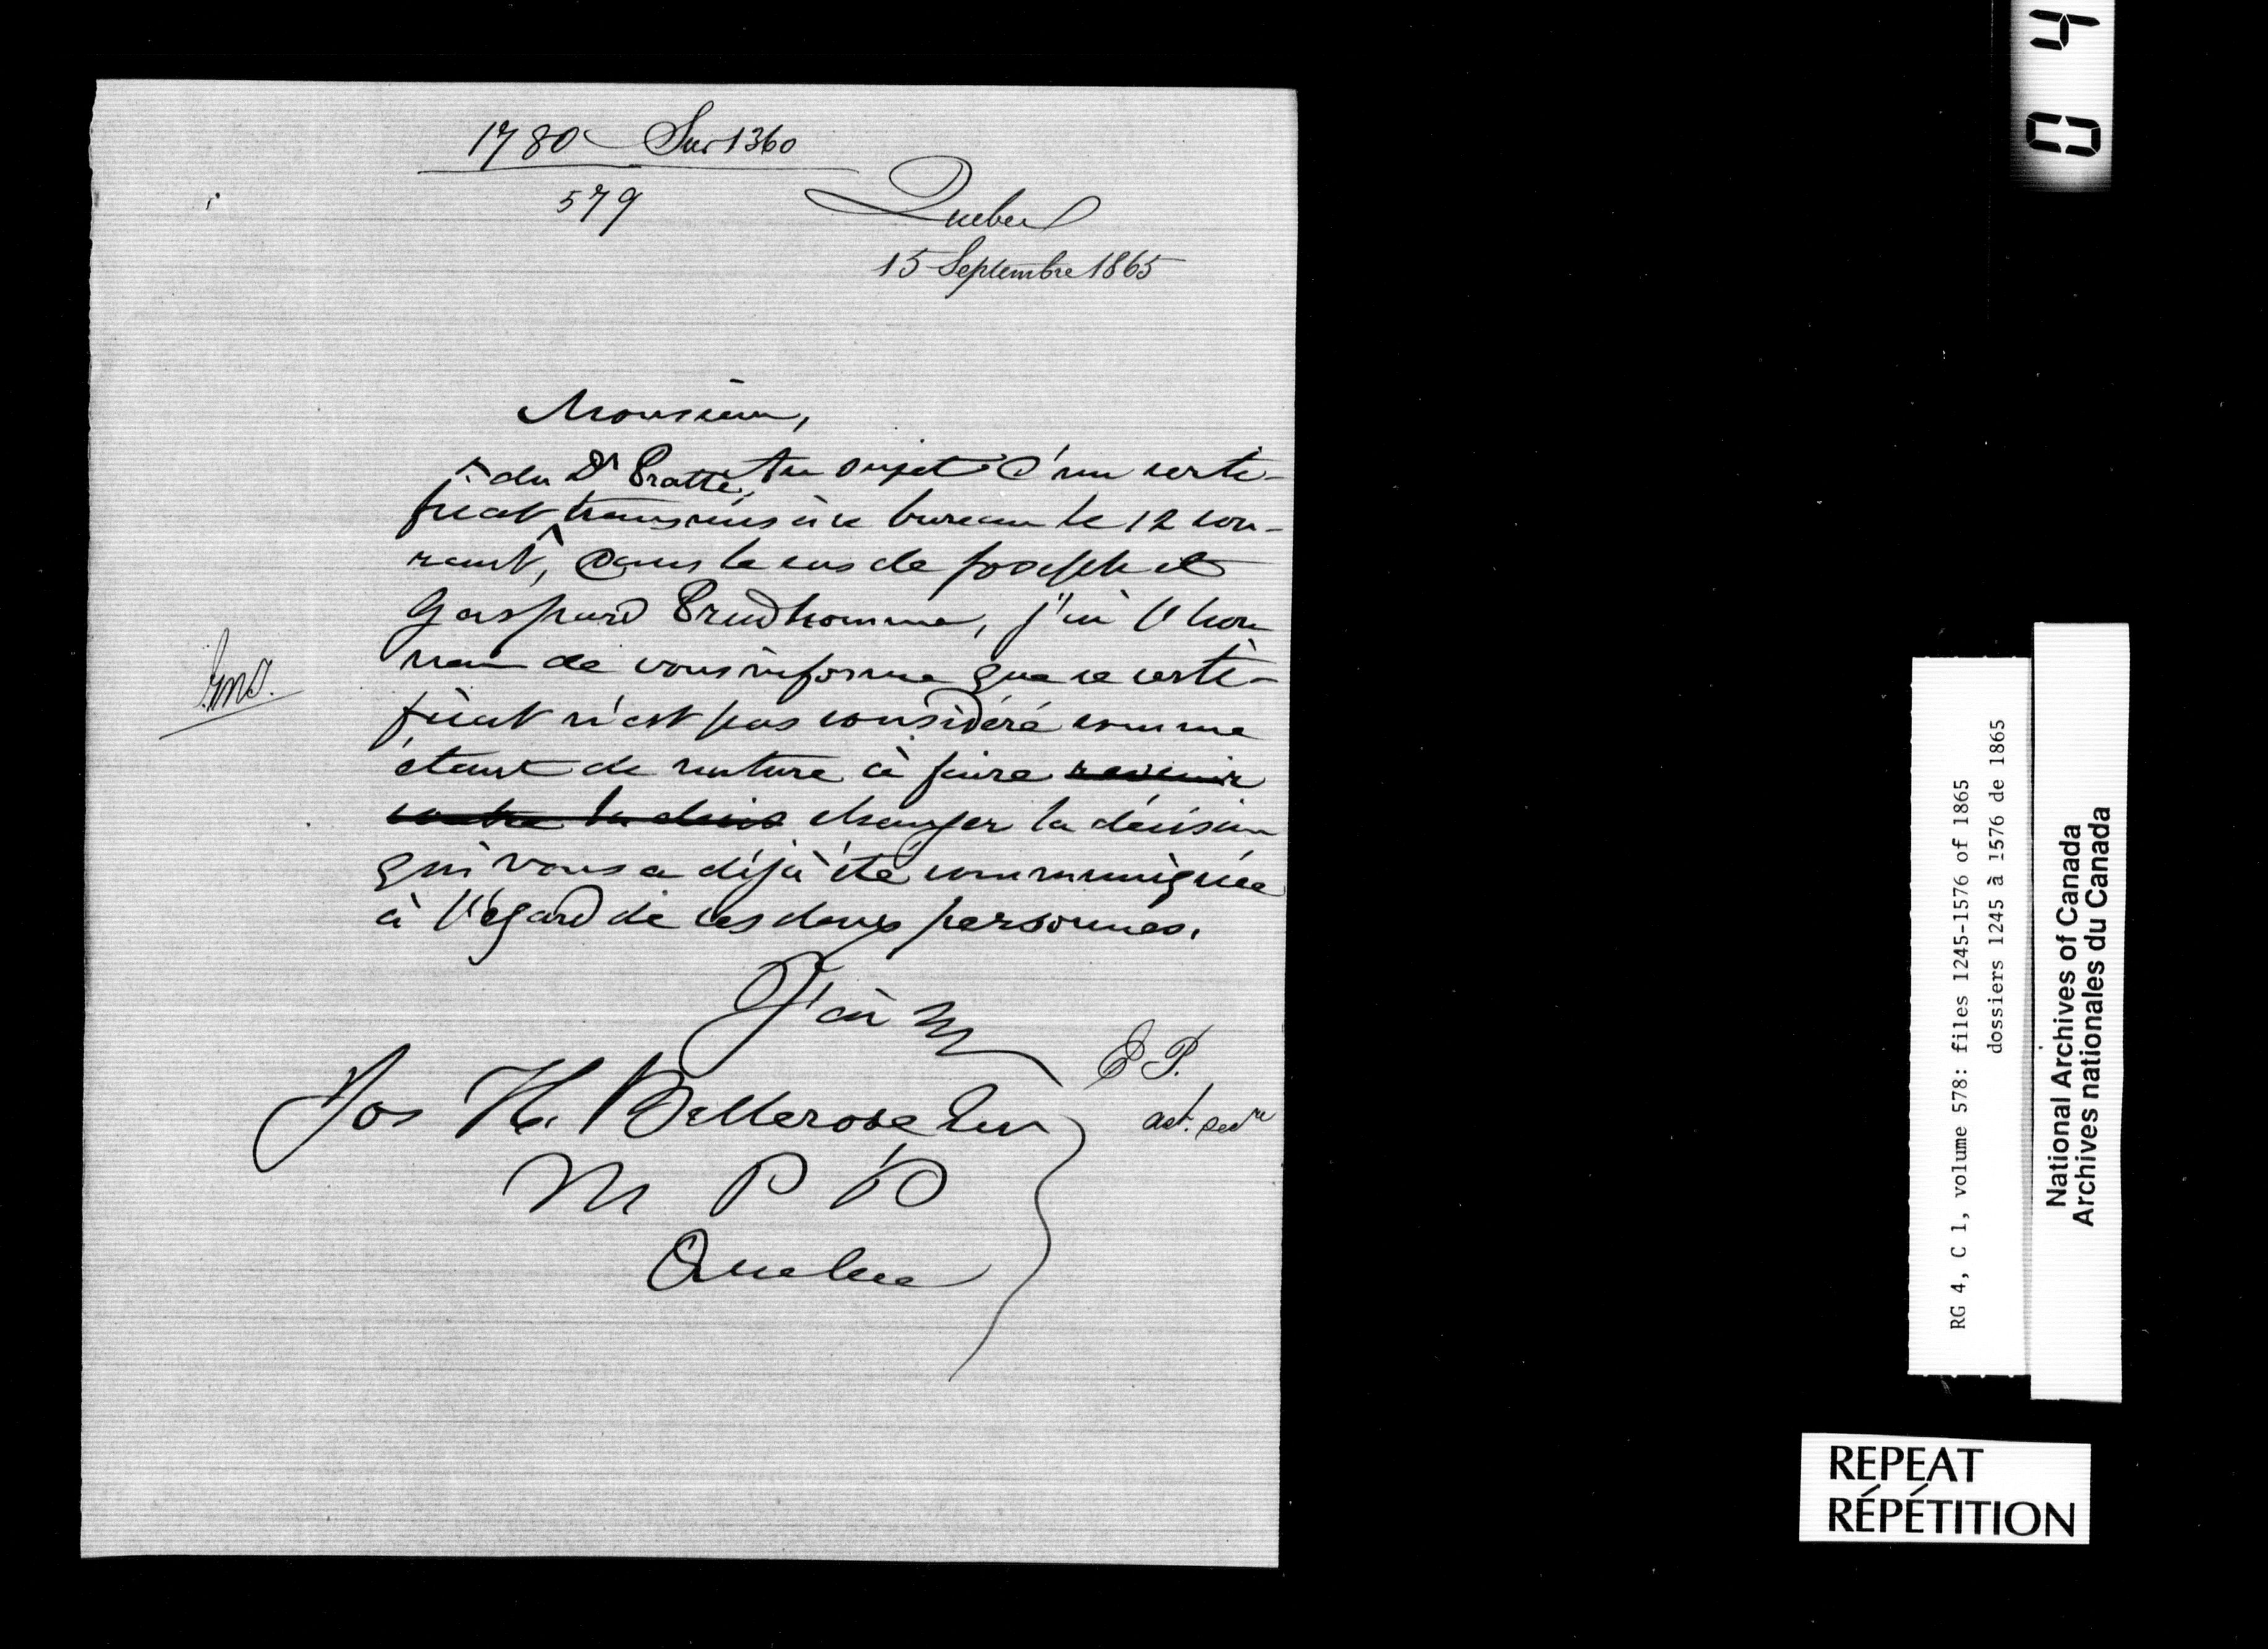 1780 Sur 1360
579
Quebec
15 Septembre 1865
Monsieur,
Au sujet d'un certi-
du Dr Pratte,
ficat transmis à ce bureau le 12 cou-
rant, dans le cas de Joseph et
Gaspard Prudhomme, j'ai l'hon
neur de vous informer que ce certi-
ficat n'est pas considéré comme
étant de nature à faire revenir
contre la decis changer la décision
qui vous a déjà été communiquée
à l'égard de ces deux personnes.
J'ai
E P.
act. secre
Jos H. Bellerose Ecr
M P P
Quebec
04
RG 4, C 1, volume 578: files 1245-1576 of 1865
dossiers 1245 à 1576 de 1865
National Archives of Canada
Archives nationales du Canada
REPEAT
RÉPÉTITION